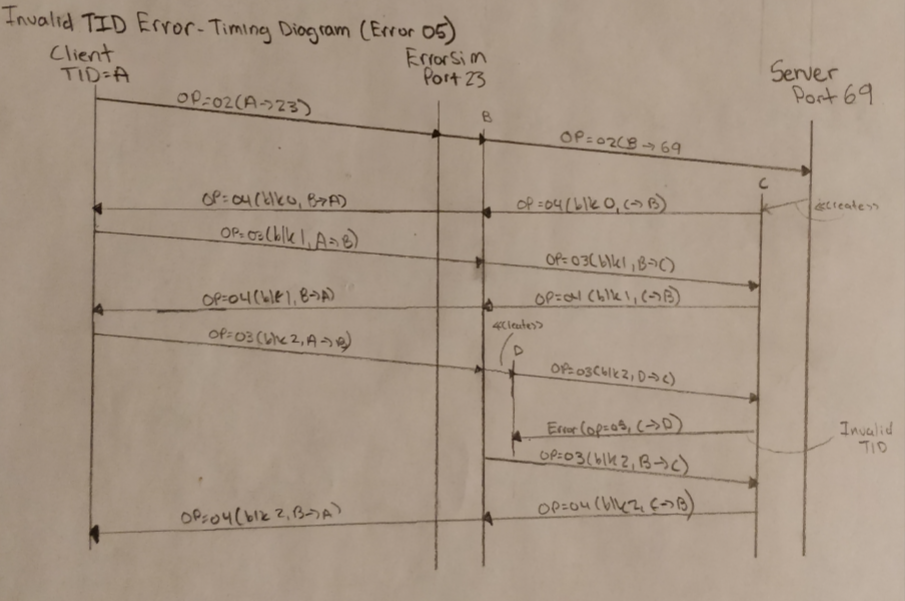 Invalid TID Error - Timing Diagram (Error 05)
Client
TID=A
ErrorSim
Port 23
Server
Port 69
OP=02(A→23)
B
OP=02(B→69
C
<<create>>
OP=04(blk0, B→A)
OP=04(blk0, C→B)
OP=03(blk1, A→B)
OP=03(blk1, B→C)
OP=04(blk1, B→A)
OP=04(blk1, C→B)
<<create>>
OP=03(blk2, A→B)
D
OP=03(blk2, D→C)
Error(op=05, C→D)
Invalid
TID
OP=03(blk2, B→C)
OP=04(blk2, B→A)
OP=04(blk2, C→B)